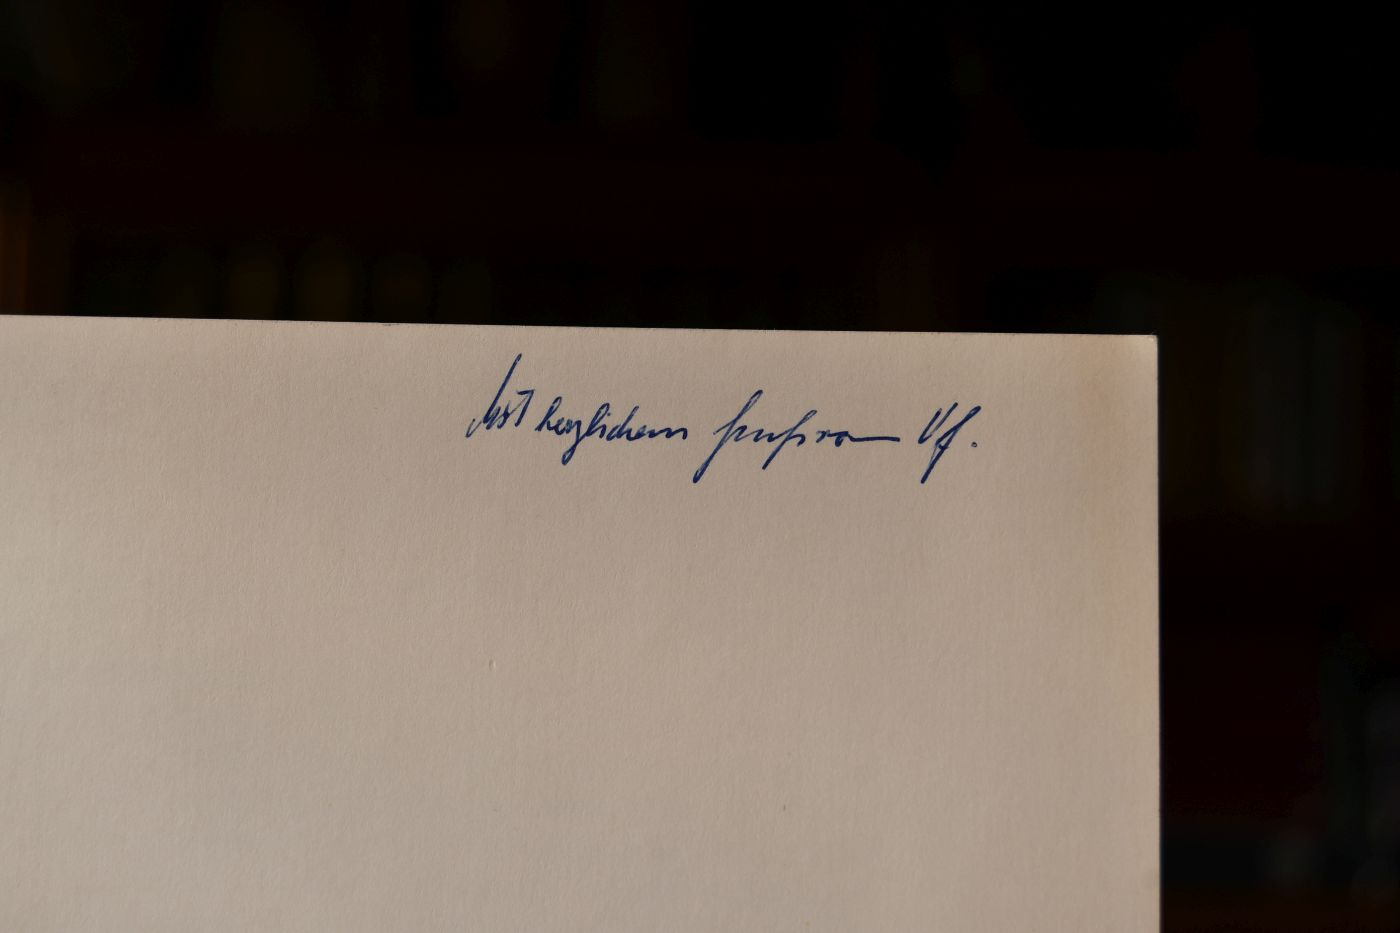 Mit herzlichem Gruß vom Vf.